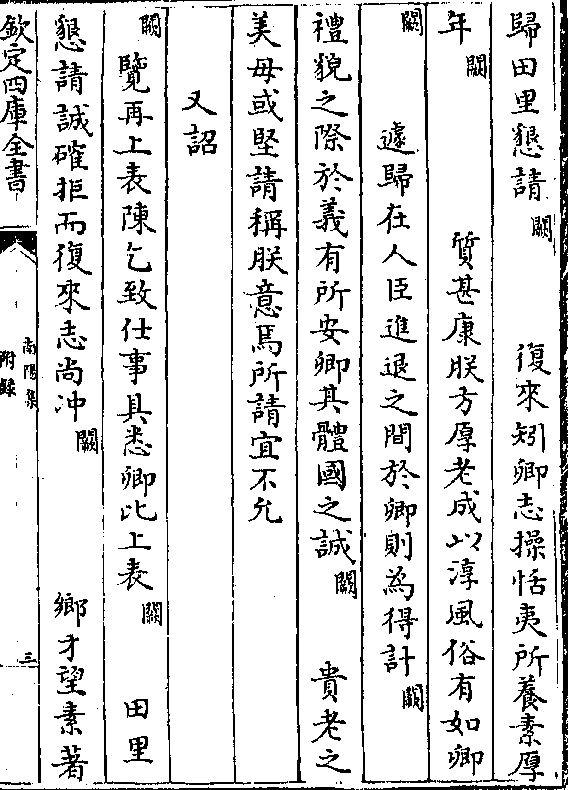 歸田里懇請闕復來矧卿志操恬夷所養素厚
年闕質甚康朕方厚老成以淳風俗有如卿
闕遽歸在人臣進退之間於卿則為得計闕
禮貌之際於義有所安卿其體國之誠闕貴老之
美毋或堅請稱朕意焉所請宜不允
又詔
闕覽再上表陳乞致仕事具悉卿比上表闕田里
懇請誠確拒而復來志尚冲闕鄉才望素著
欽定四庫全書
南陽集
附錄
三